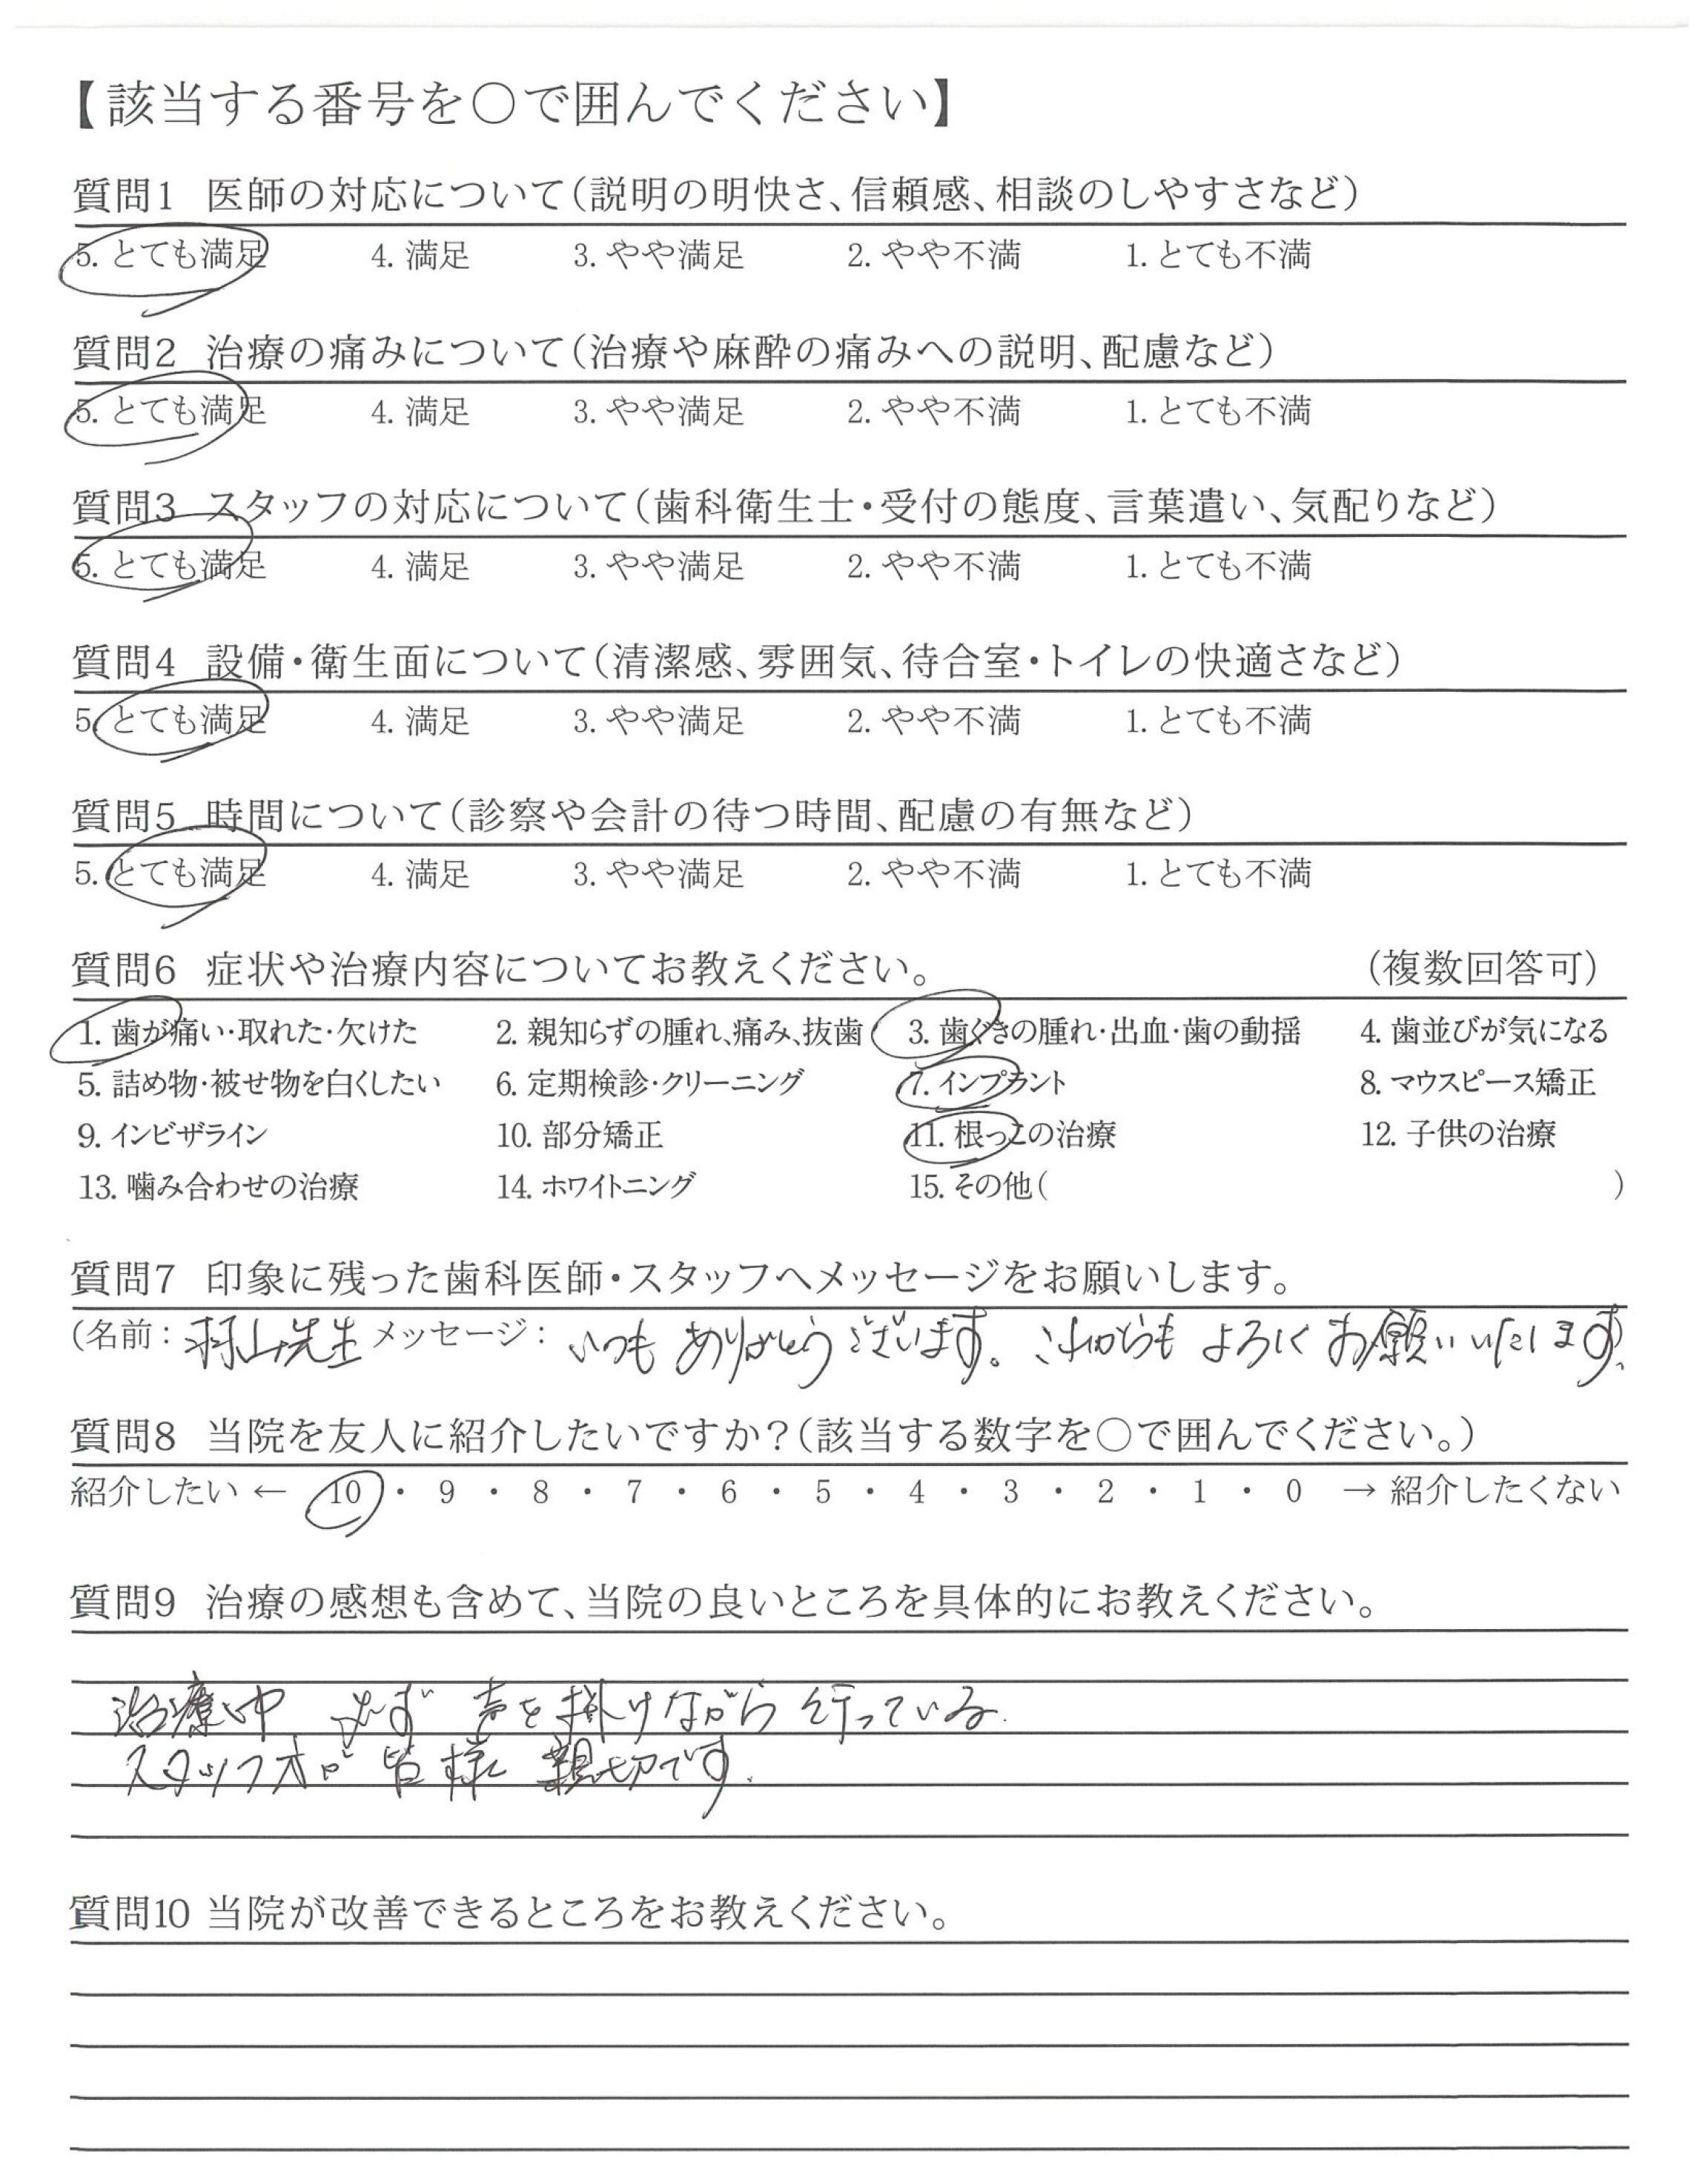 【該当する番号を○で囲んでください】
質問1 医師の対応について(説明の明快さ、信頼感、相談のしやすさなど)
5. とても満足 4. 満足 3. やや満足 2. やや不満 1. とても不満
質問2 治療の痛みについて(治療や麻酔の痛みへの説明、配慮など)
5. とても満足 4. 満足 3. やや満足 2. やや不満 1. とても不満
質問3 スタッフの対応について(歯科衛生士・受付の態度、言葉遣い、気配りなど)
5. とても満足 4. 満足 3. やや満足 2. やや不満 1. とても不満
質問4 設備・衛生面について(清潔感、雰囲気、待合室・トイレの快適さなど)
5. とても満足 4. 満足 3. やや満足 2. やや不満 1. とても不満
質問5 時間について(診察や会計の待つ時間、配慮の有無など)
5. とても満足 4. 満足 3. やや満足 2. やや不満 1. とても不満
質問6 症状や治療内容についてお教えください。 (複数回答可)
1. 歯が痛い・取れた・欠けた 2. 親知らずの腫れ、痛み、抜歯 3. 歯ぐきの腫れ・出血・歯の動揺 4. 歯並びが気になる
5. 詰め物・被せ物を白くしたい 6. 定期検診・クリーニング 7. インプラント 8. マウスピース矯正
9. インビザライン 10. 部分矯正 11. 根っこの治療 12. 子供の治療
13. 噛み合わせの治療 14. ホワイトニング 15. その他( )
質問7 印象に残った歯科医師・スタッフへメッセージをお願いします。
(名前: 先生 メッセージ: いつも ありがとうございます。これからも よろしく お願いいたします)
質問8 当院を友人に紹介したいですか?(該当する数字を○で囲んでください。)
紹介したい ← 10 ・ 9 ・ 8 ・ 7 ・ 6 ・ 5 ・ 4 ・ 3 ・ 2 ・ 1 ・ 0 → 紹介したくない
質問9 治療の感想も含めて、当院の良いところを具体的にお教えください。
治療中 必ず 声を掛けながら 行っている.
スタッフ 皆様 親切です.
質問10 当院が改善できるところをお教えください。